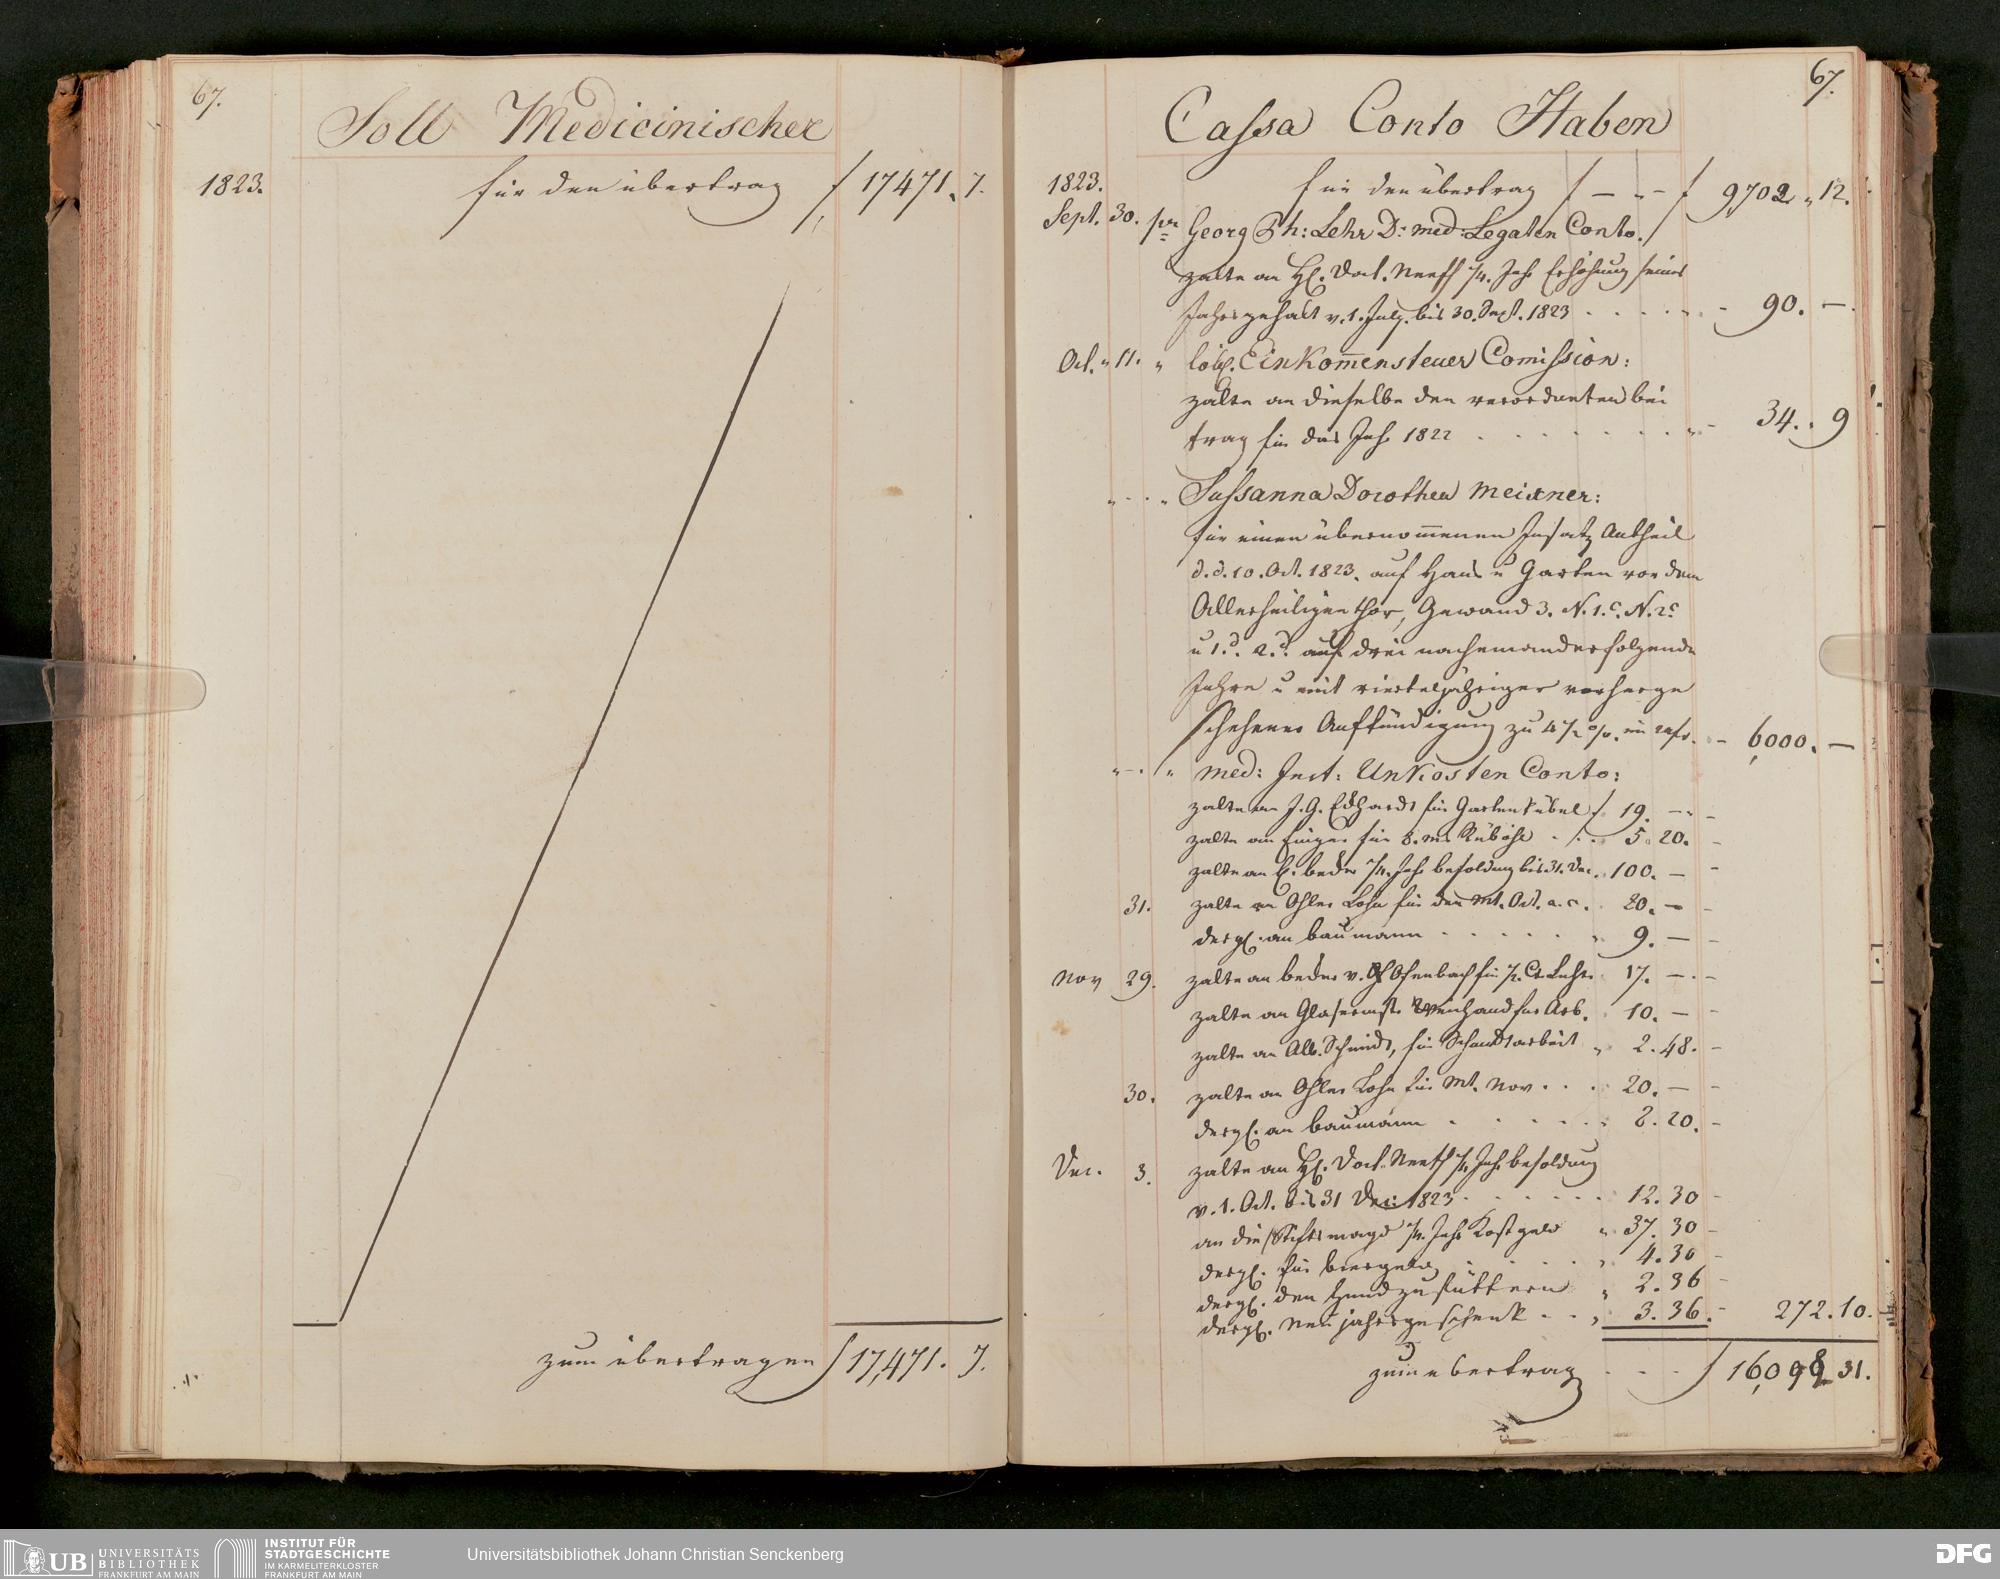 67.
Soll Medicinischer
1823.
für den übertrag f 17471. 7.
zum übertragen f 17,471. 7.
67.
Cassa Conto Haben
1823.
für den übertrag f — „ — f 9702 „ 12.
Sept. 30. pr Georg Ph: Lehr D: med: Legaten Conto.
zalte an H. Doct. Neeff ¼. Jahr Erhöhung seines
Jahrsgehalt v. 1. July. bis 30. Sept. 1823 . . . . 90. —
Oct. „ 11. „ löbl. Einkom̅ensteuer Comission:
zalte an dieselbe den verordneten bei
trag für das Jahr 1822 . . . . . . . 34. 9
„ - . „ Sussanna Dorothea Meixner:
für einen übernom̅enen Insatz Antheil
d. d. 10. Oct. 1823. auf Haus u Garten vor dem
Allerheiligenthor, Gewand 3. N. 1.c. N. 2c
u 1.d. 2.d. auf drei nacheinanderfolgende
Jahre u mit vierteljähriger vorherge
schehener Aufkündigung zu 4½ %. im 6000. —
„ - . „ med: Inst: Unkosten Conto:
zalte an J. G. Eckhardt für Gartenkübel f. 19. —
zalte an für 8. ms Rüböhl . . . 5. 20.
zalte an beder ¼. Jahr besoldung bis 31. Dec. 100. —
31. zalte an Ohler Lohn für den Mt. Oct. a. c. 20. —
dergl. an baumann . . . . . 9. —
Nov 29. zalte an beder v. Ofenbach für ½. Ct. 17. —
zalte an Glasermstr. Weinhand für Arb. 10. —
zalte an Alb. Schmidt, für 2. 48.
30. zalte an Ohler Lohn für Mt. Nov . . . 20. —
dergl. an baumann . . . . . 8. 20.
Dec. 3. zalte an H. Doct. Neeff ¼. Jahr besoldung
v. 1. Oct. bis 31 Dec: 1823 . . . . 12. 30
an die Stiftsmagd ¼. Jahr Kostgeld „ 37. 30
dergl. für biergeld . . . „ 4. 30
dergl. den Hund zu füttern „ 2. 36
dergl. Neujahrsgeschenk . . „ 3. 36. 272. 10.
zum übertrag . . . f 16,098 31.
UB UNIVERSITÄTS
BIBLIOTHEK
FRANKFURT AM MAIN
INSTITUT FÜR
STADTGESCHICHTE
IM KARMELITERKLOSTER
FRANKFURT AM MAIN
Universitätsbibliothek Johann Christian Senckenberg
DFG